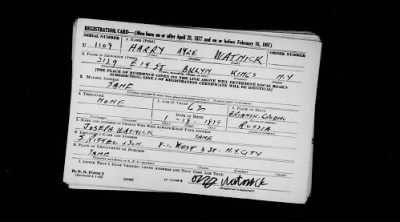 REGISTRATION CARD—(Men born on or after April 28, 1877 and on or before February 16, 1897)
SERIAL NUMBER 1. NAME (Print) ORDER NUMBER
U 1109 HARRY WATNICK
2. PLACE OF RESIDENCE (Print)
3129 E 14 ST. BKLYN KINGS N.Y
[THE PLACE OF RESIDENCE GIVEN ON THE LINE ABOVE WILL DETERMINE LOCAL BOARD
JURISDICTION; LINE 2 OF REGISTRATION CERTIFICATE WILL BE IDENTICAL]
3. MAILING ADDRESS
SAME
4. TELEPHONE 5. AGE IN YEARS 6. PLACE OF BIRTH
NONE 62
DATE OF BIRTH
1 - 18 - 1879 RUSSIA
7. NAME AND ADDRESS OF PERSON WHO WILL ALWAYS KNOW YOUR ADDRESS
JOSEPH WATNICK SAME
8. EMPLOYER'S NAME AND ADDRESS
& SON WEST 3 ST. N.Y. CITY
9. PLACE OF EMPLOYMENT OR BUSINESS
SAME
I AFFIRM THAT I HAVE VERIFIED ABOVE ANSWERS AND THAT THEY ARE TRUE.
D. S. S. Form 1
Watnick